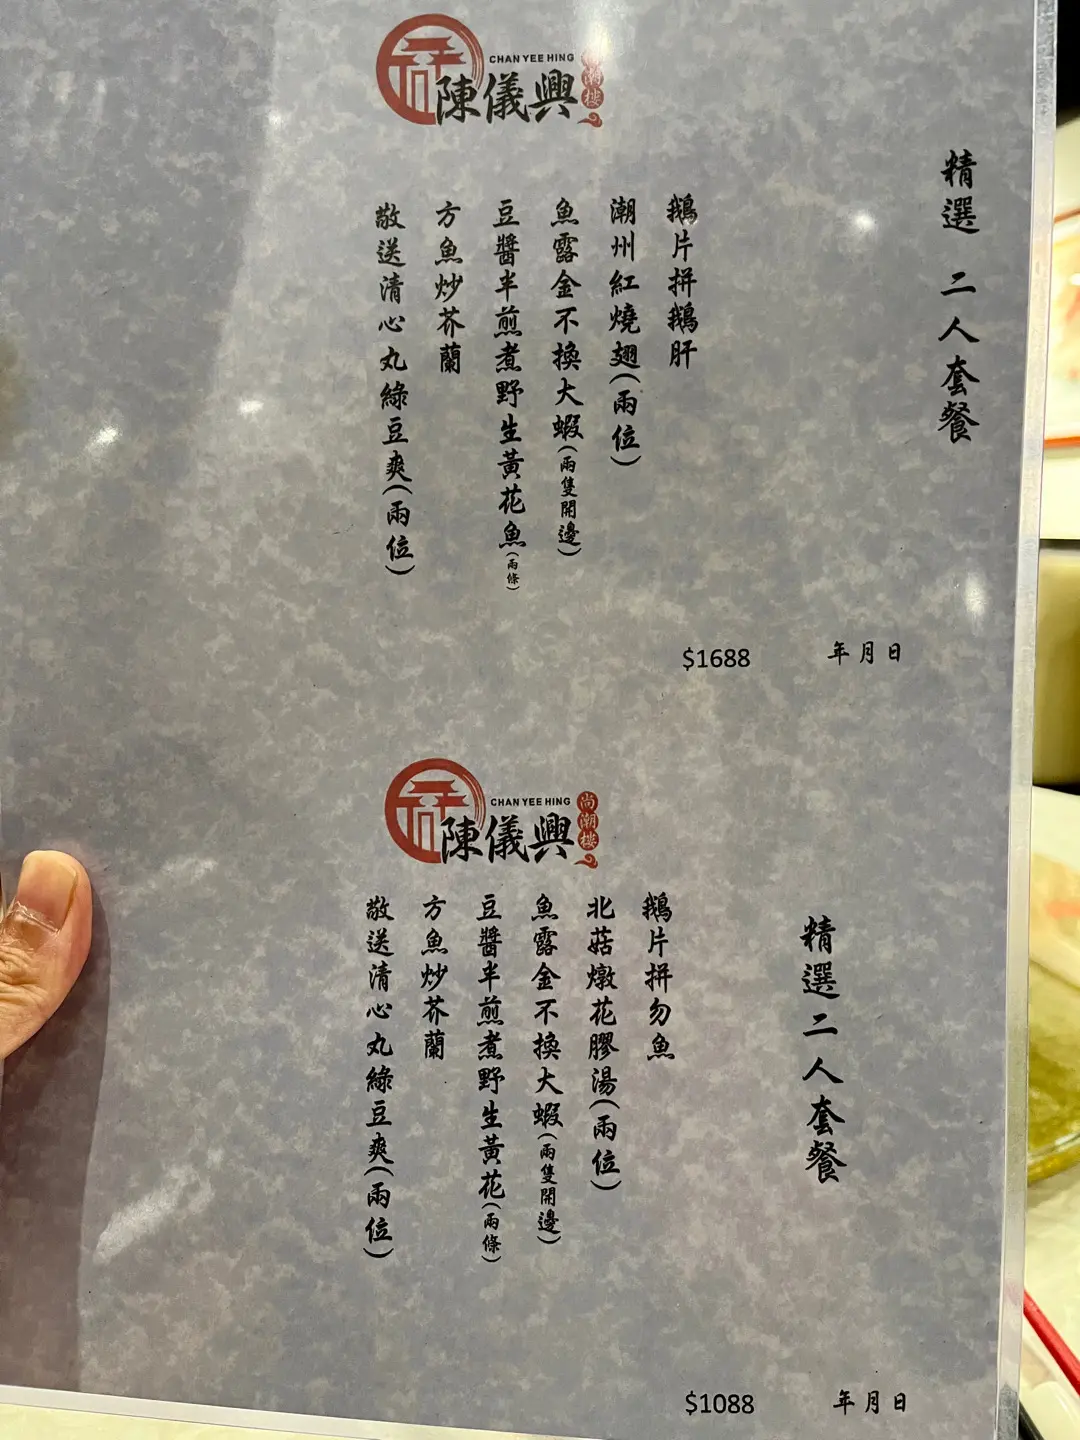 CHAN YEE HING
陳儀興
尚潮楼
精選 二人套餐
鵝片拼鵝肝
潮州紅燒翅(兩位)
魚露金不換大蝦(兩隻開邊)
豆醬半煎煮野生黃花魚(兩條)
方魚炒芥蘭
敬送清心丸綠豆爽(兩位)
$1688 年月日
CHAN YEE HING
陳儀興
尚潮楼
精選二人套餐
鵝片拼勿魚
北菇燉花膠湯(兩位)
魚露金不換大蝦(兩隻開邊)
豆醬半煎煮野生黃花(兩條)
方魚炒芥蘭
敬送清心丸綠豆爽(兩位)
$1088 年月日